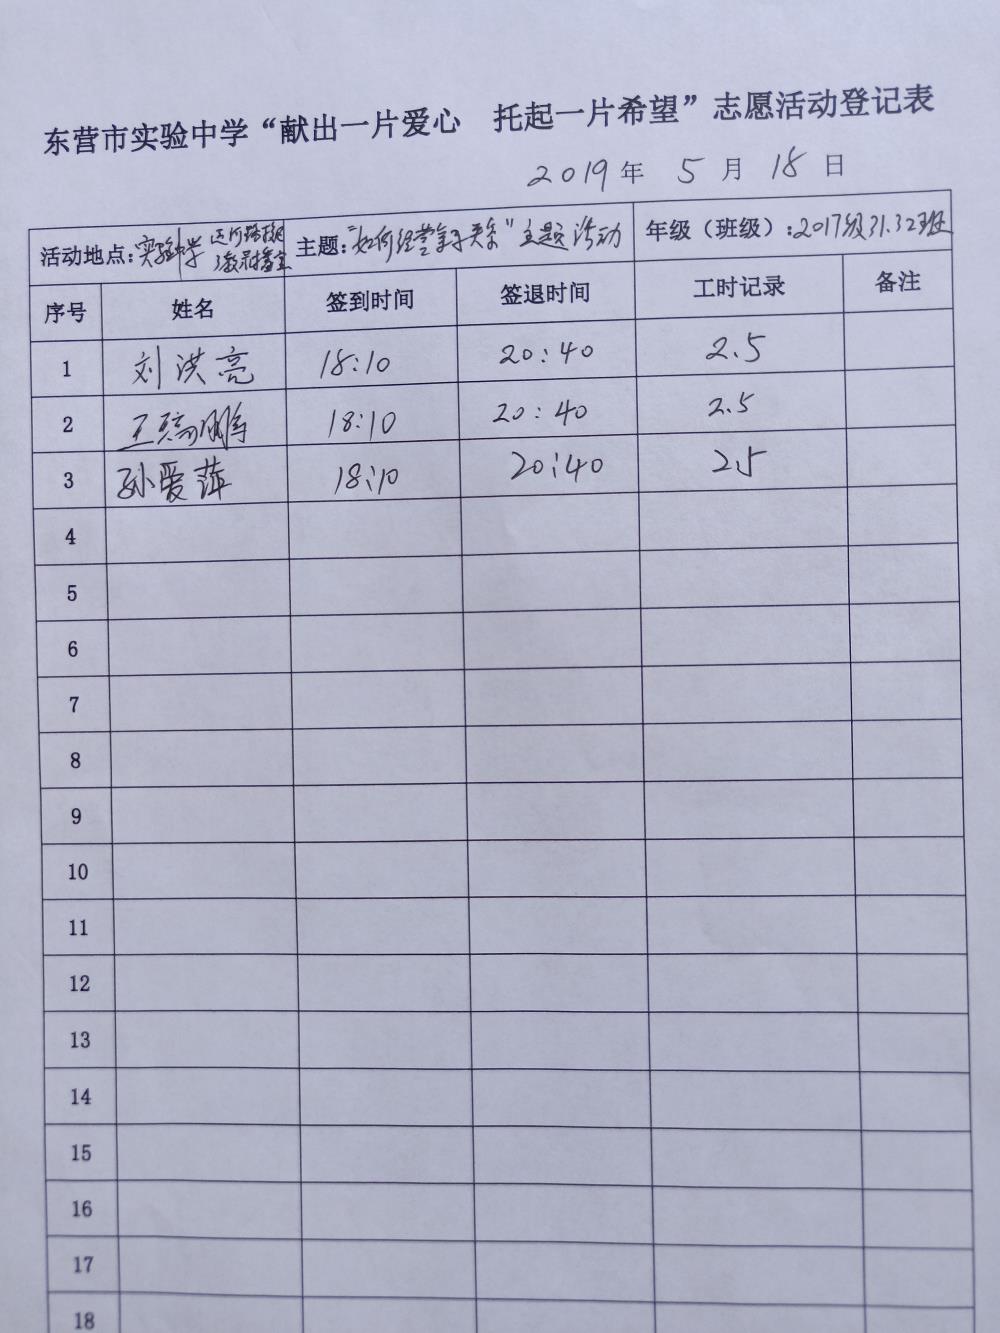 东营市实验中学“献出一片爱心 托起一片希望”志愿活动登记表
2019年 5月 18日
活动地点:实验中学 主题:“如何经营亲子关系”主题活动 年级(班级):2017级31.32班
序号 姓名 签到时间 签退时间 工时记录 备注
1 刘洪亮 18:10 20:40 2.5
2 王 鹏 18:10 20:40 2.5
3 孙爱萍 18:10 20:40 2.5
4
5
6
7
8
9
10
11
12
13
14
15
16
17
18